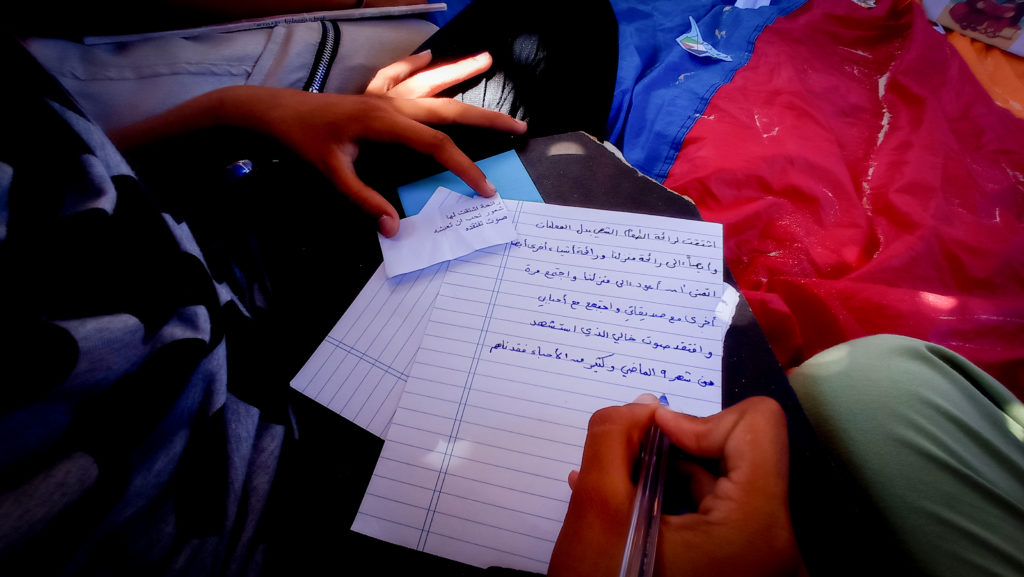 رائحة اشتقت لها
شعور تحب ان تعيشه
صوت تفتقده
اشتقت لرائحة الطعام الشهي بدل المعلبات
وايضاً الى رائحة منزلنا ورائحة أشياء أخرى أيضا
اتمنى أن أعود الى منزلنا واجتمع مرة
أخرى مع صديقاتي واجتمع مع أحبابي
وافتقد صوت خالي الذي استشهد
من شهر ٩ الماضي وكثير من الأحباء فقدناهم